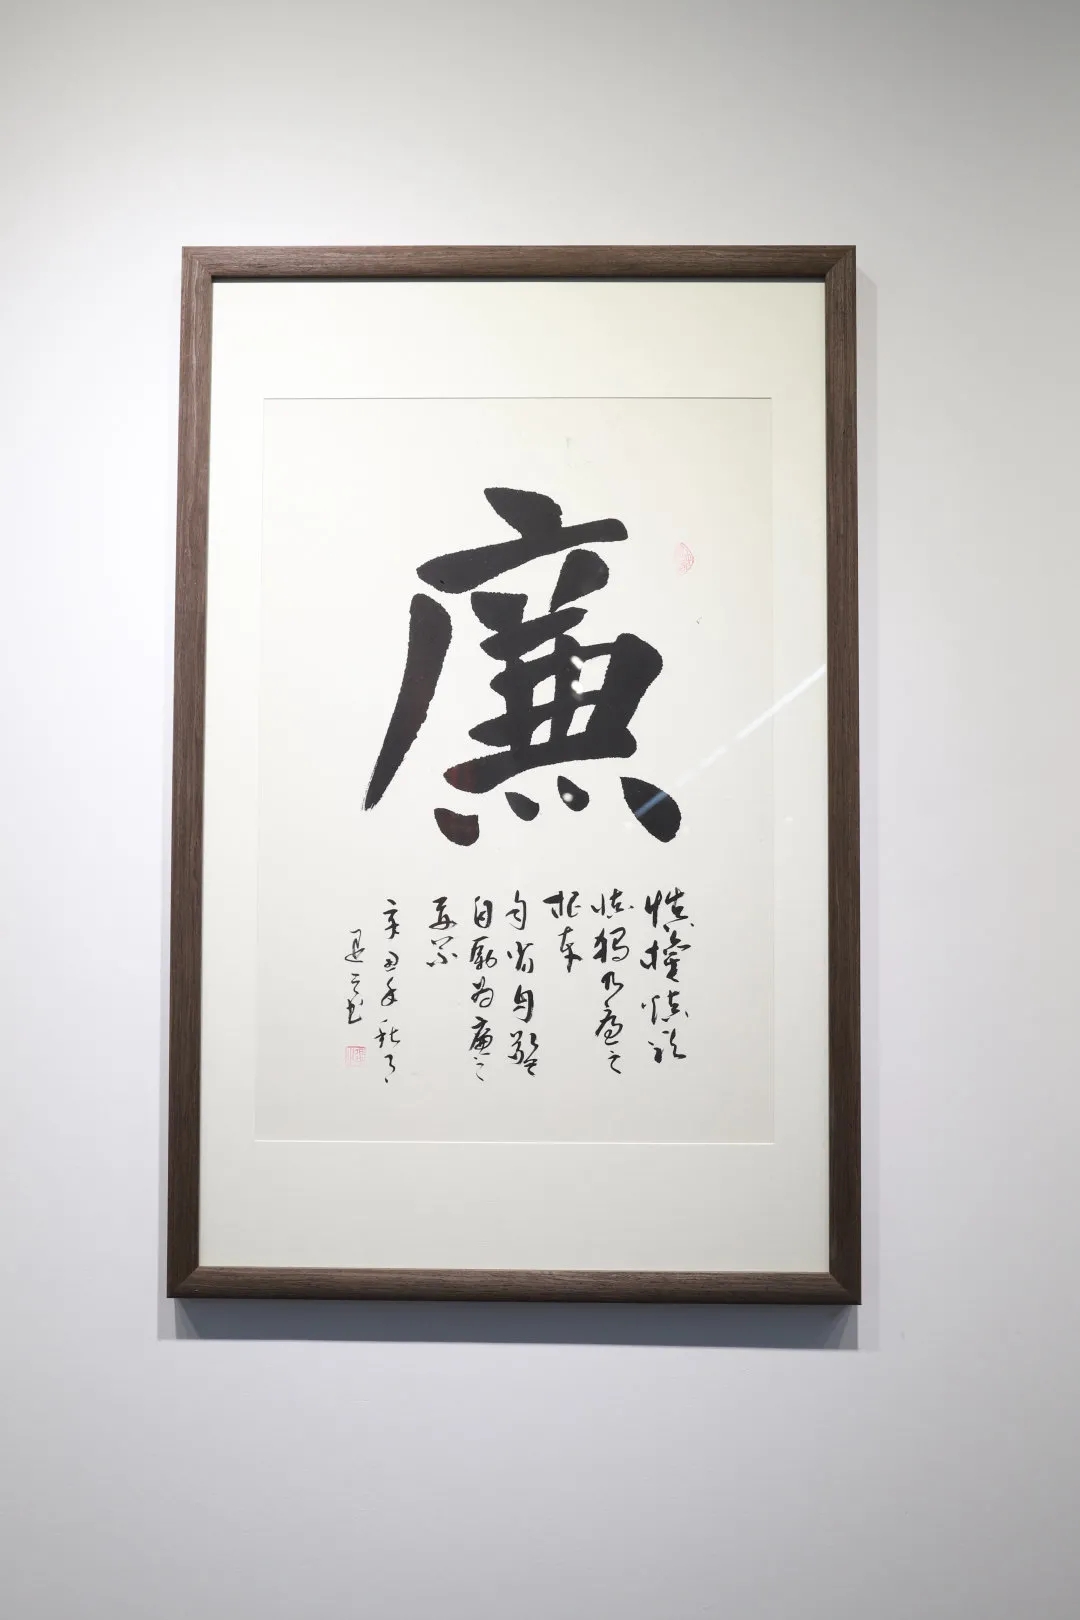 廉
慎權慎欲
慎獨乃廉之
根本
自省自警
自勵為廉之
要
辛丑年秋月
之书